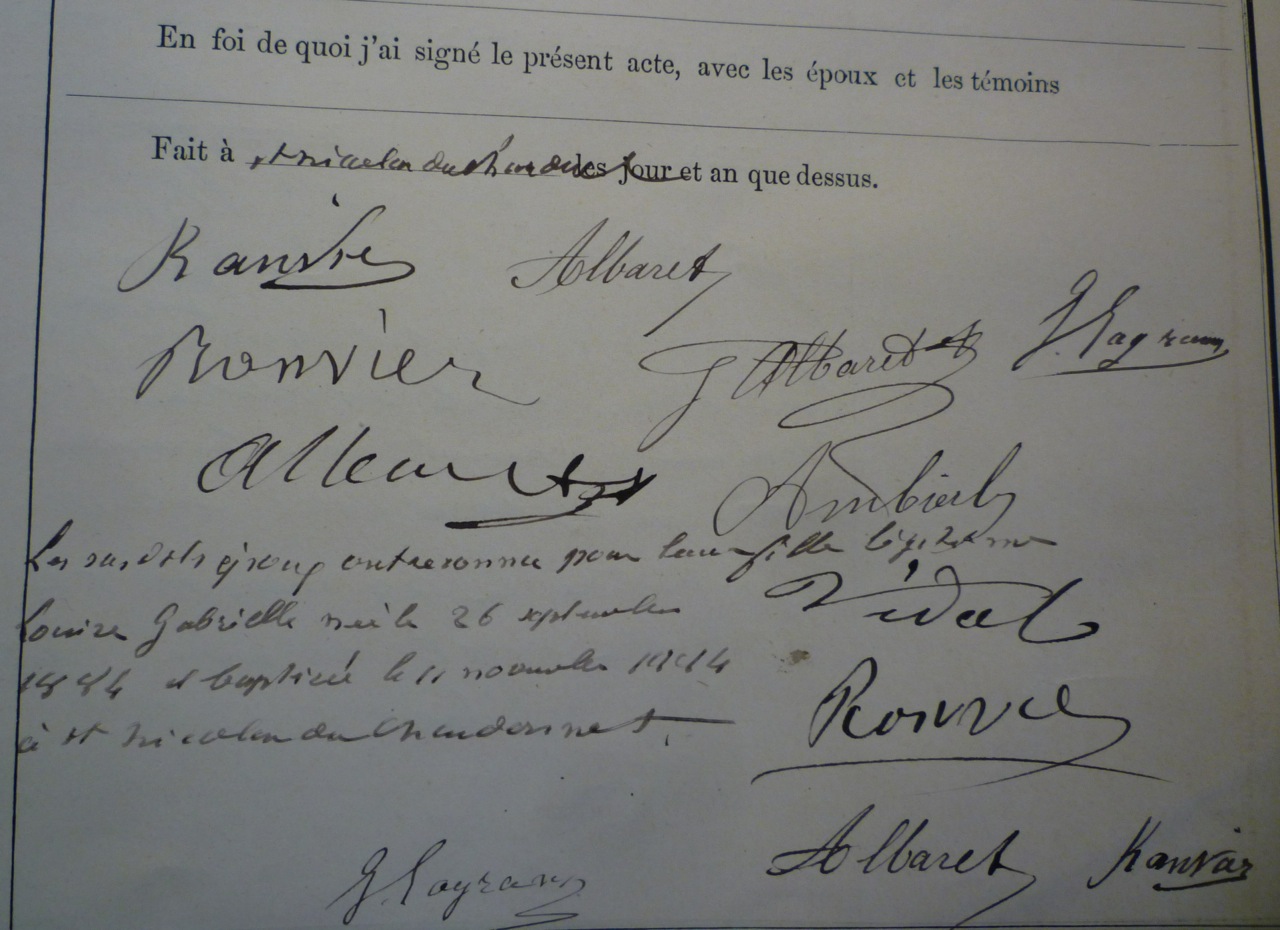 En foi de quoi j'ai signé le présent acte, avec les époux et les témoins
Fait à st nicolas du Chardonnet les jour et an que dessus.
Albaret
Ronvier
J Albaret
G. Lagran
Ambiel
Les susdits époux ont reconnu pour leur fille légitime
Vidal
Louise Gabrielle née le 26 septembre
1884 et baptisée le 11 novembre 1884
à st nicolas du Chardonnet.
Albaret